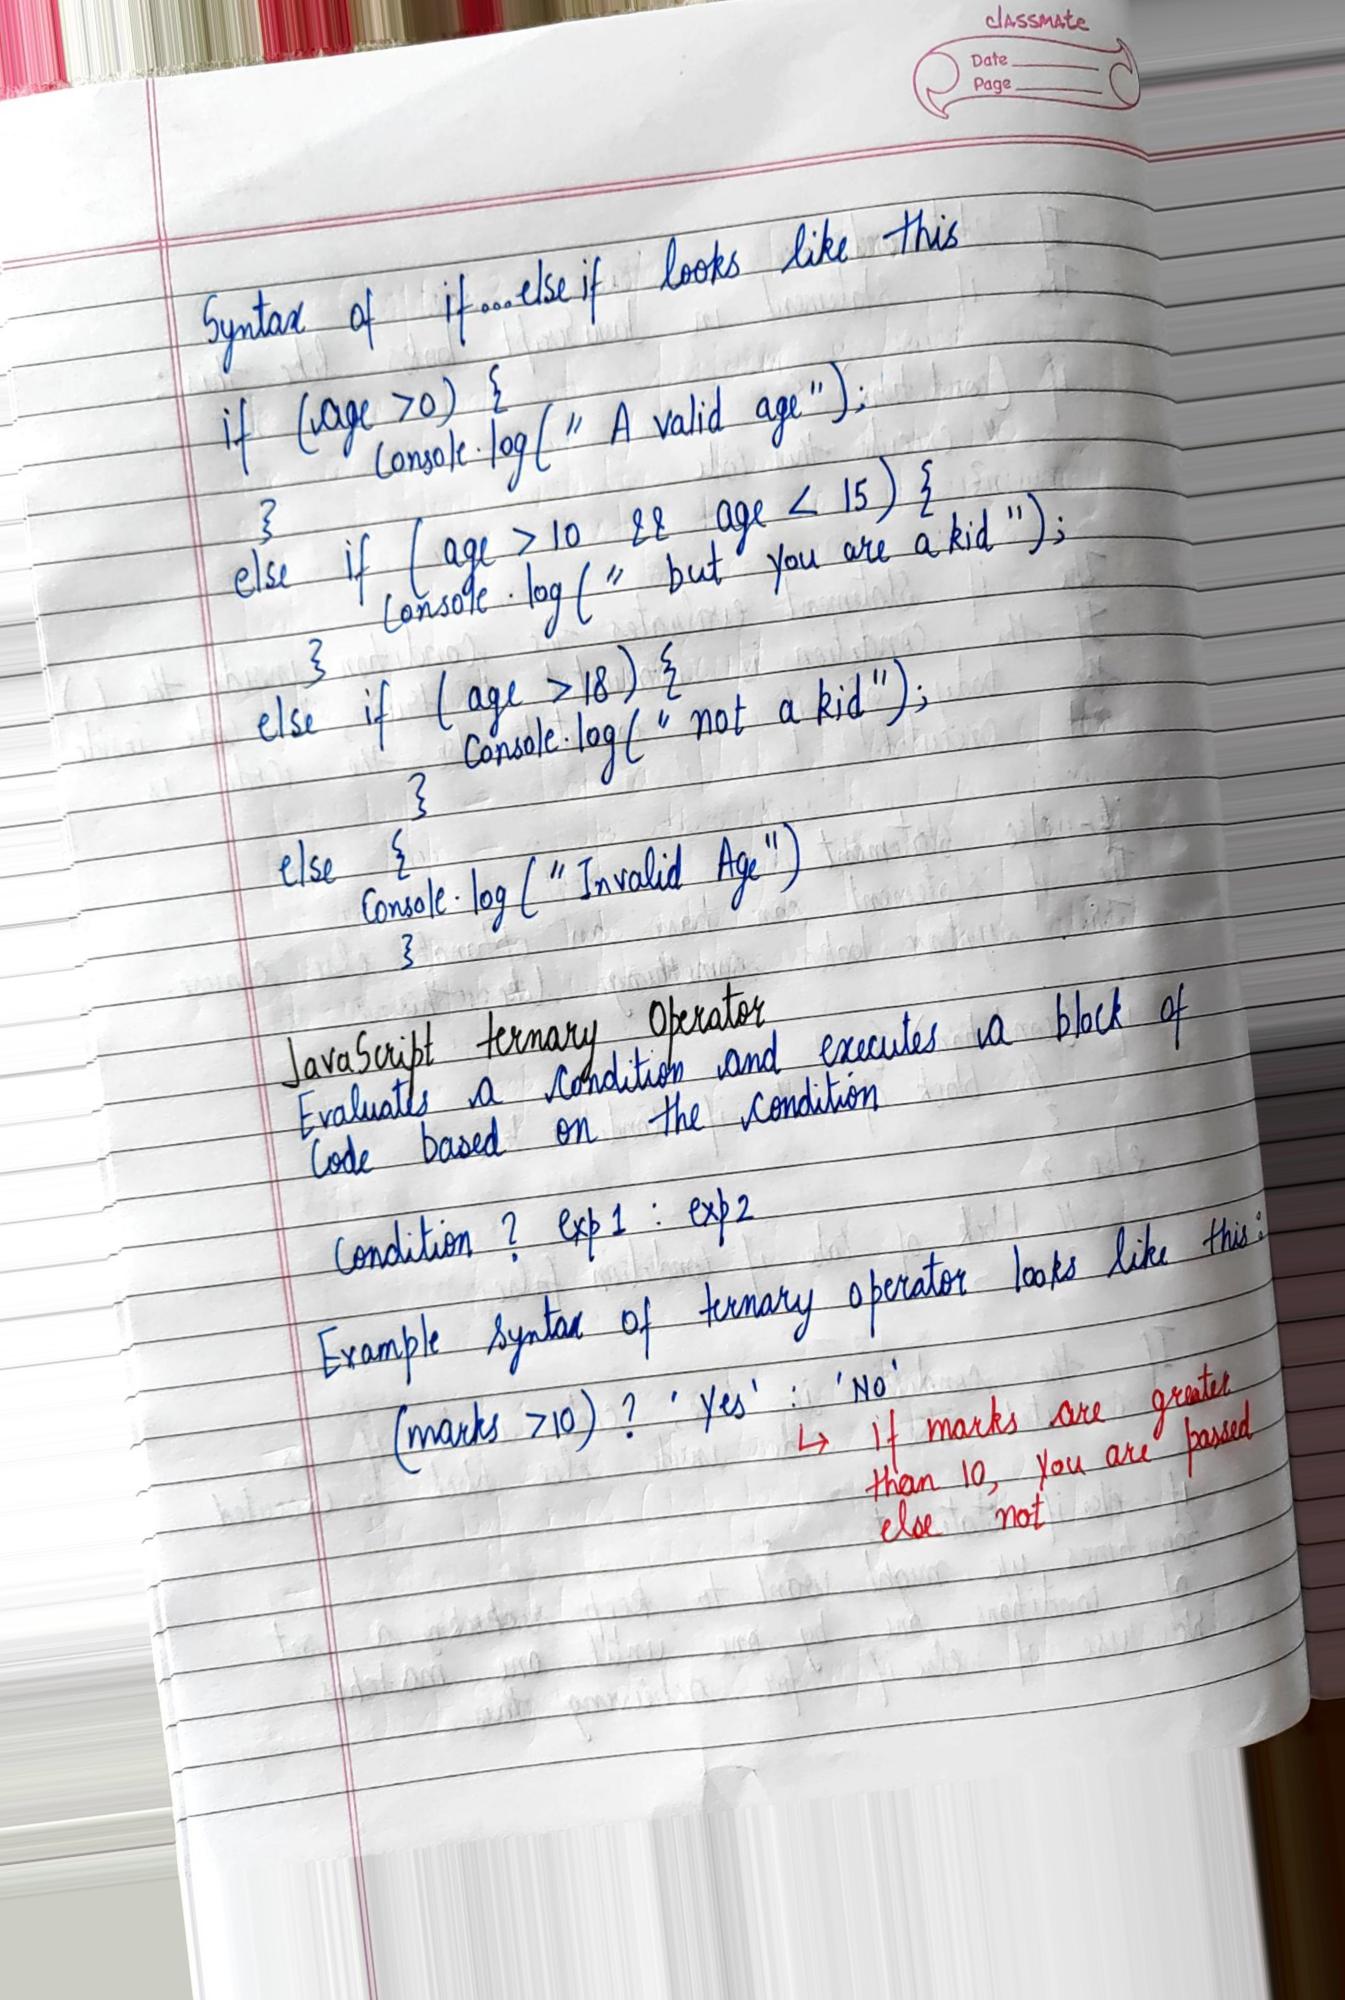 classmate
Date
Page
Syntax of if...else if looks like this
if (age >0) {
Console.log(" A valid age");
}
else if (age >10 && age < 15) {
Console.log(" but you are a kid");
}
else if (age >18) {
Console.log(" not a kid");
}
else {
Console.log("Invalid Age")
}
JavaScript ternary Operator
Evaluates a condition and executes a block of
Code based on the condition
Condition ? exp1 : exp2
Example syntax of ternary operator looks like this:
(marks >10) ? 'Yes' : 'NO'
↳ if marks are greater
than 10, you are passed
else not